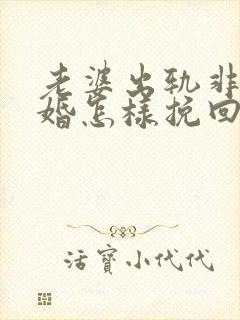 老婆出轨非
婚怎様挽回
活寳小代代